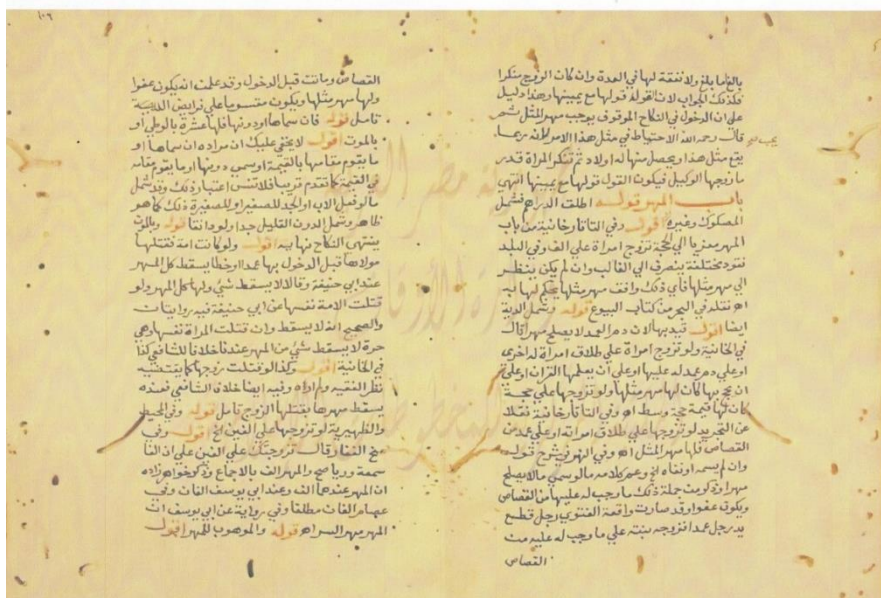 ١٠٦
بالغا ما بلغ ولا نفقة لها في العدة وان كان الزوج منكرا
فكذلك الجواب لان القول قولها مع يمينها وهذا دليل
على ان الدخول في النكاح الموقوف يوجب مهر المثل ثم
قال رحمه الله الاحتياط في مثل هذا الامر لانه ربما
يقع مثل هذا ويحصل منها له اولاد ثم تنكر المراة قدر
ما زوجها الوكيل فيكون القول قولها مع يمينها انتهى
باب المهر قوله اطلقت الدراهم فشمل
المصكوك وغيره اقول وفي التاتارخانية من باب
المهر معزيا الى الحجة تزوج امراة على الف وفي البلد
نقود مختلفة ينصرف الى الغالب وان لم يكن ينظر
الى مهر مثلها فأي ذلك وافق مهر مثلها يحكم لها به
اه نقله في البحر من كتاب البيوع قوله وشمل الدية
ايضا اقول قيد بها لان دم العمد لا يصلح مهرا قال
في الخانية ولو تزوج امراة على طلاق امراة له اخرى
او على دم عمد له عليها او على أن يعلمها القران او على
ان يحج بها كان لها مهر مثلها ولو تزوجها على حجة
كان لها قيمة حجة وسط اه وفي التاتارخانية نقلا
عن التجريد لو تزوجها على طلاق امراته او على عمد من
القصاص فلها مهر المثل اه وفي النهر في شرح قوله
وان لم يسمه او نفاه الخ وعم كلامه ما لو سمى ما لا يصلح
مهرا وذكر من جملة ذلك ما وجب له عليها من القصاص
ويكون عفوا وقد صارت واقعة الفتوى رجل قطع
يد رجل عمدا فزوجه بنته على ما وجب له عليه من
القصاص
القصاص وماتت قبل الدخول وقد علمت انه يكون عفوا
ولها مهر مثلها ويكون مقسوما على فرايض الله
تامل قوله فان سماها او دونها فلها عشرة بالوطي او
بالموت اقول لا يخفى عليك ان مراده ان سماها او
ما يقوم مقامها بالقيمة او سمى دونها او ما يقوم مقامه
في القيمة كما تقدم قريبا فلا تنسى اعتبار ذلك وقد شمل
ما لو فعل الاب او الجد للصغير او للصغيرة ذلك كما هو
ظاهر وشمل الدون القليل جدا ولو دانقا قوله وبالموت
ينتهى النكاح نهايته اقول ولو كانت امة فقتلها
مولاها قبل الدخول بها عمدا او خطا يسقط كل المهر
عند ابي حنيفة وقالا لا يسقط شئ ولها كل المهر ولو
قتلت الامة نفسها عن ابي حنيفة فيه روايتان
والصحيح انه لا يسقط وان قتلت المراة نفسها وهي
حرة لا يسقط شئ من المهر عندنا خلافا للشافعي كذا
في الخانية اقول وكذا لو قتلت زوجها كما يقتضيه
نظر الفقيه ولم اراه وفيه ايضا خلاف الشافعي فعنده
يسقط مهرها بقتلها الزوج تامل قوله وفي المحيط
والظهيرية لو تزوجها على الفين الخ اقول وفي
منح الغفار قال تزوجتك على الفين على ان الفا
سمعة ورياء صح والمهر الف بالاجماع وذكر خواهر زاده
ان المهر عندهما الف وعند ابي يوسف الفان وفي
عصام الفان مطلقا وفي رواية عن ابي يوسف ان
المهر مهر السر اه قوله والموهوب للمهر اقول